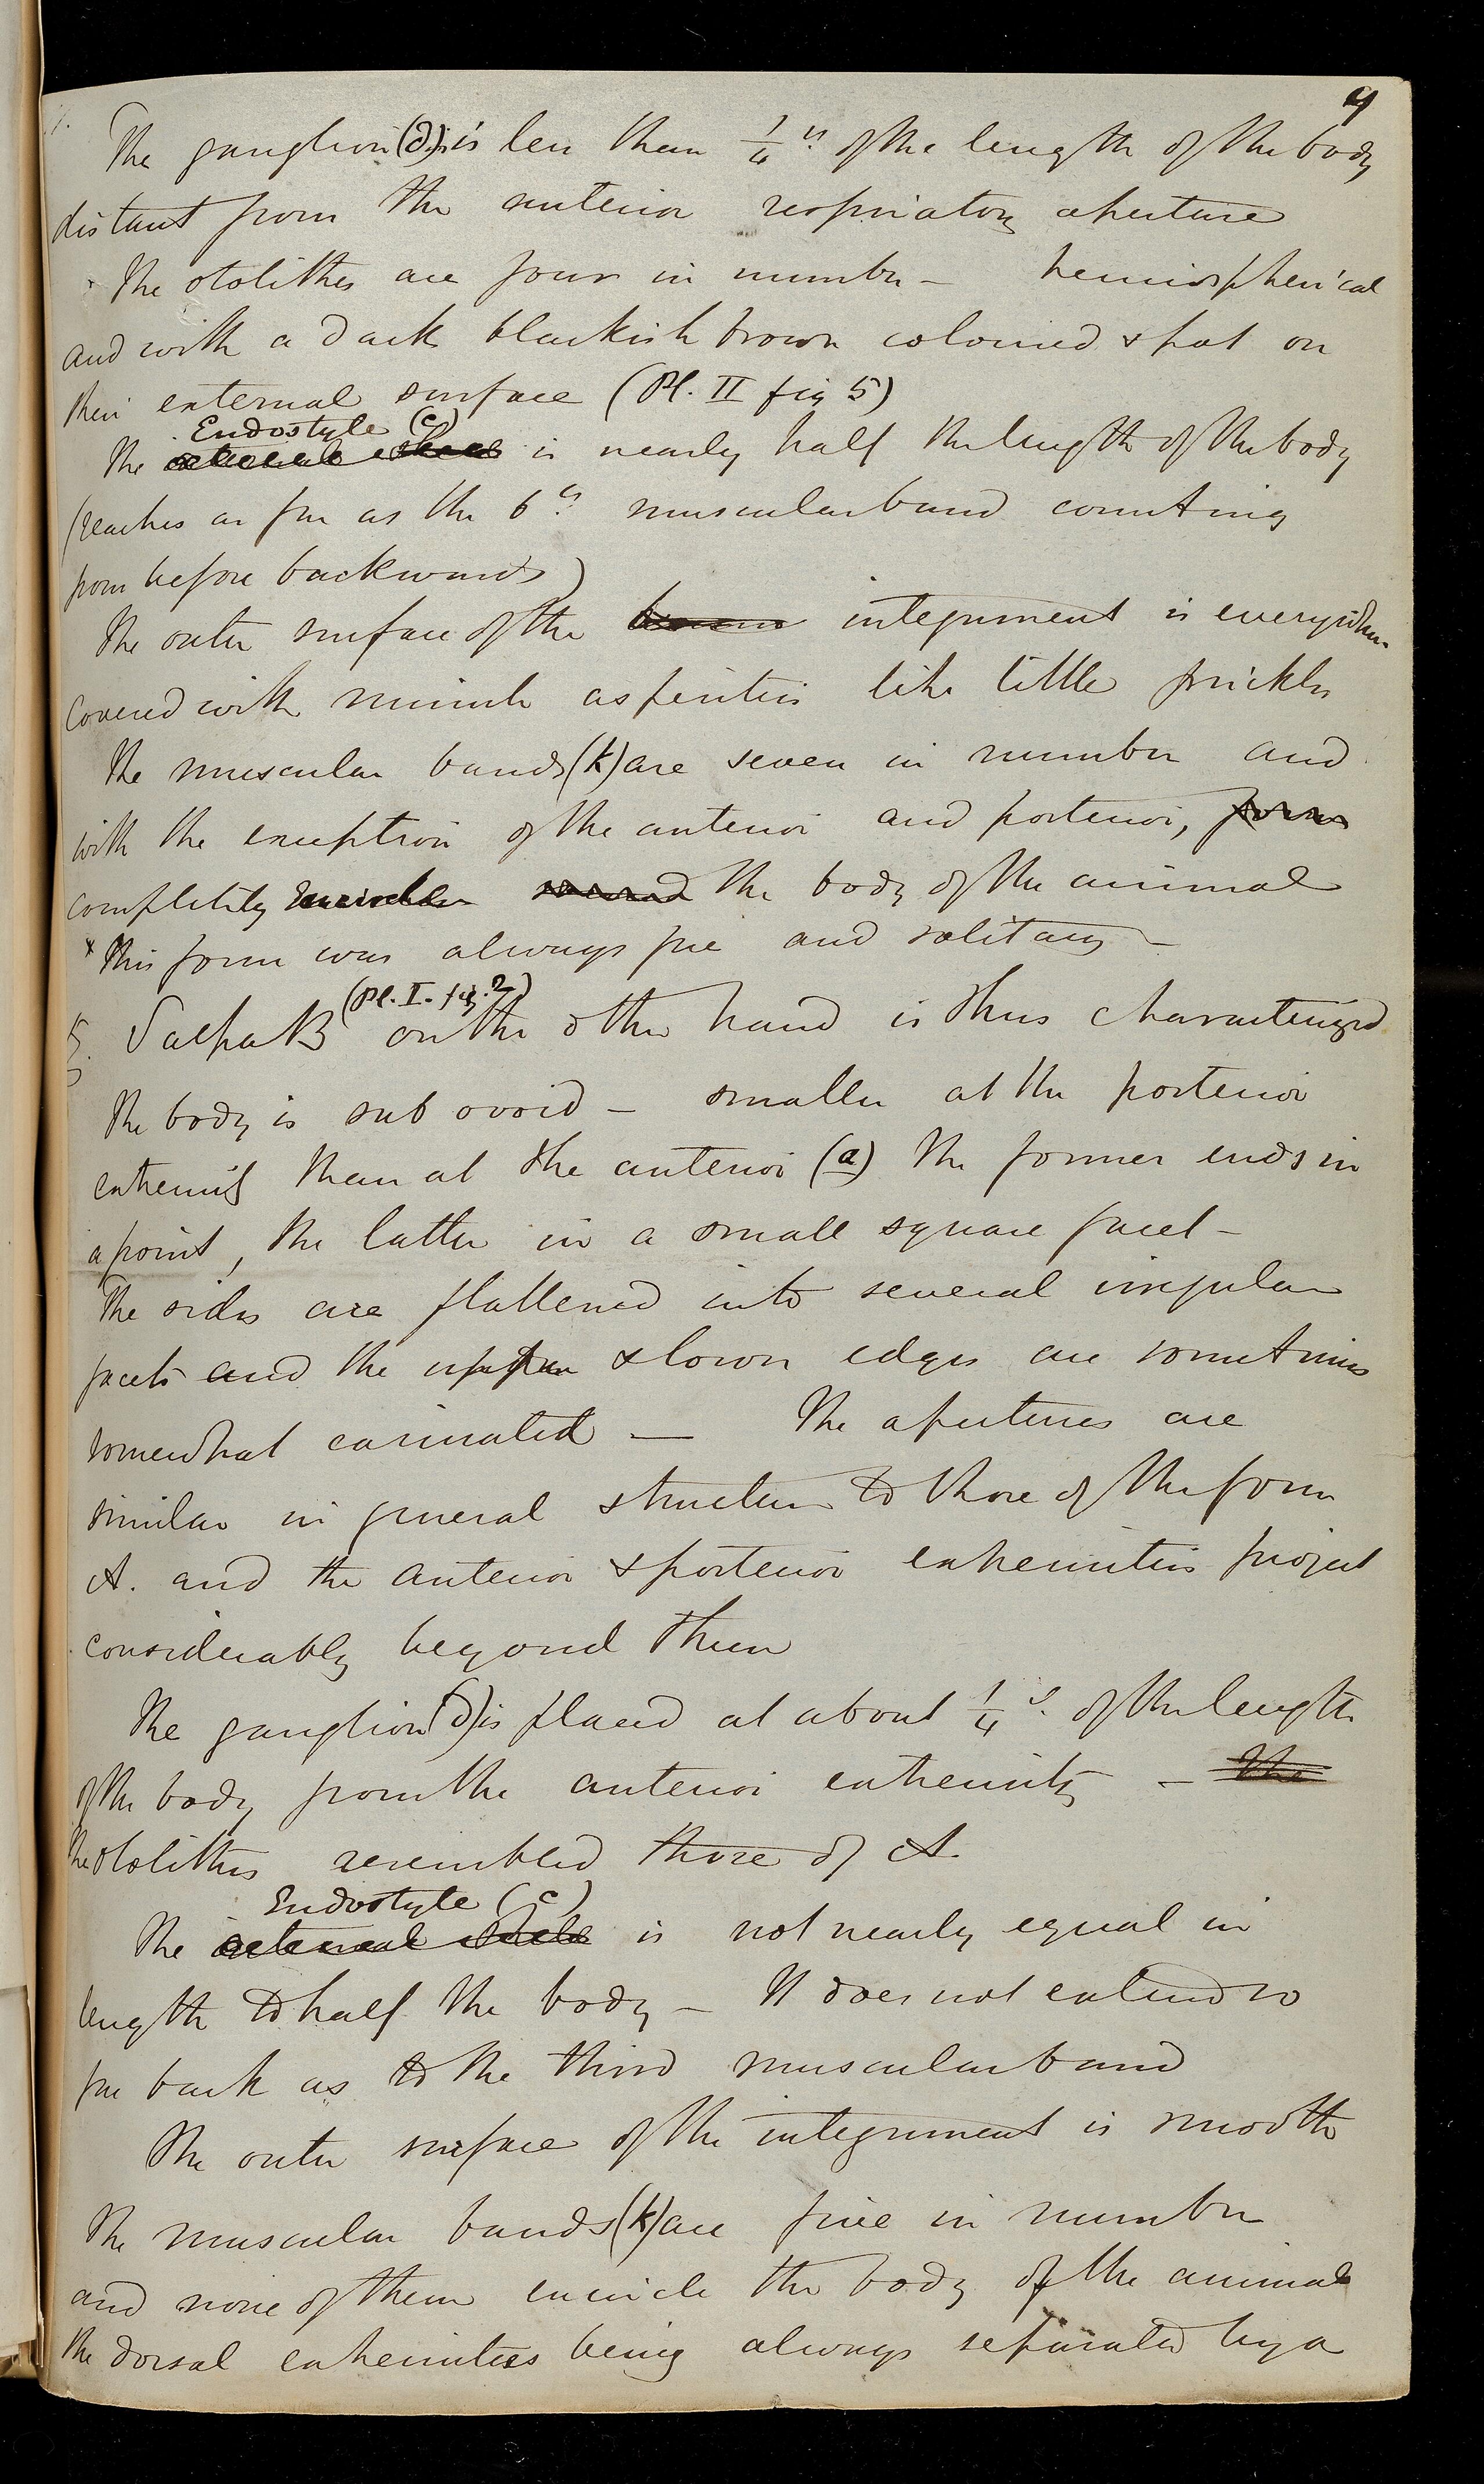 4
The ganglion (d) is less than 1/6th of the length of the body
distant from the anterior respiratory aperture
The otolithes are four in number — hemispherical
and with a dark blackish brown coloured spot on
their external surface (Pl. II fig 5)
Endostyle (c)
The is nearly half the length of the body
(reaches as far as the 6th muscular band counting
from before backwards)
The outer surface of the integument is everywhere
covered with minute asperities like little prickles
The muscular bands (k) are seven in number and
with the exception of the anterior and posterior, form
completely encircle round the body of the animal
* This form was always free and solitary —
(Pl. I. fig. 2)
5. Salpa B on the other hand is thus characterized
The body is sub ovoid — smaller at the posterior
extremity than at the anterior (a) The former ends in
a point, the latter in a small square facet —
The sides are flattened into several irregular
facets and the upper & lower edges are sometimes
somewhat carinated — The apertures are
similar in general structure to those of the form
A. and the anterior & posterior extremities project
considerably beyond them
The ganglion (d) is placed at about 1/4th of the length
of the body from the anterior extremity — The
The otolithes resembled those of A.
Endostyle (c)
The is not nearly equal in
length to half the body — It does not extend so
far back as to the third muscular band
The outer surface of the integument is smooth
The muscular bands (k) are five in number
and none of them encircle the body of the animal
the dorsal extremities being always separated by a